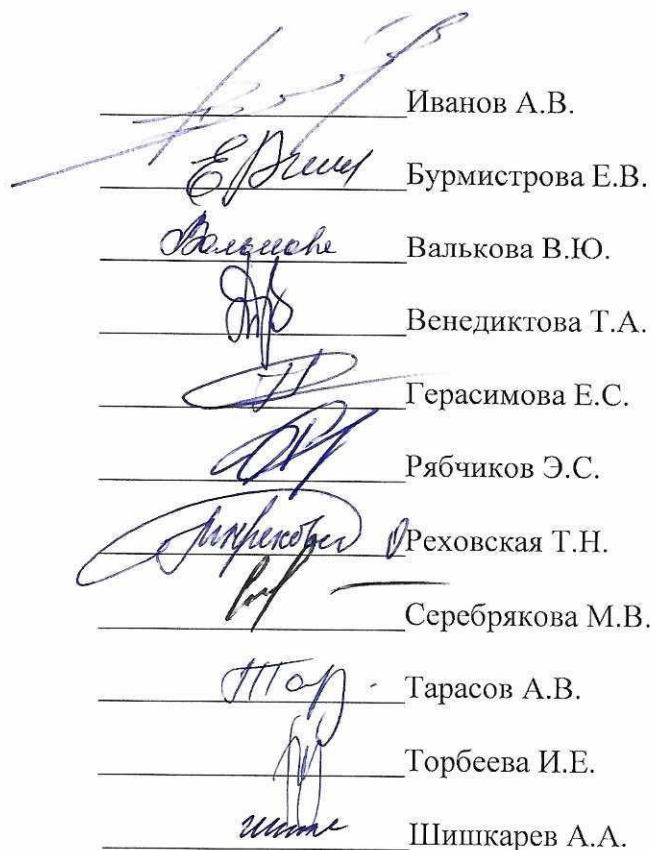 Иванов А.В.
Бурмистрова Е.В.
Валькова В.Ю.
Венедиктова Т.А.
Герасимова Е.С.
Рябчиков Э.С.
Реховская Т.Н.
Серебрякова М.В.
Тарасов А.В.
Торбеева И.Е.
Шишкарев А.А.